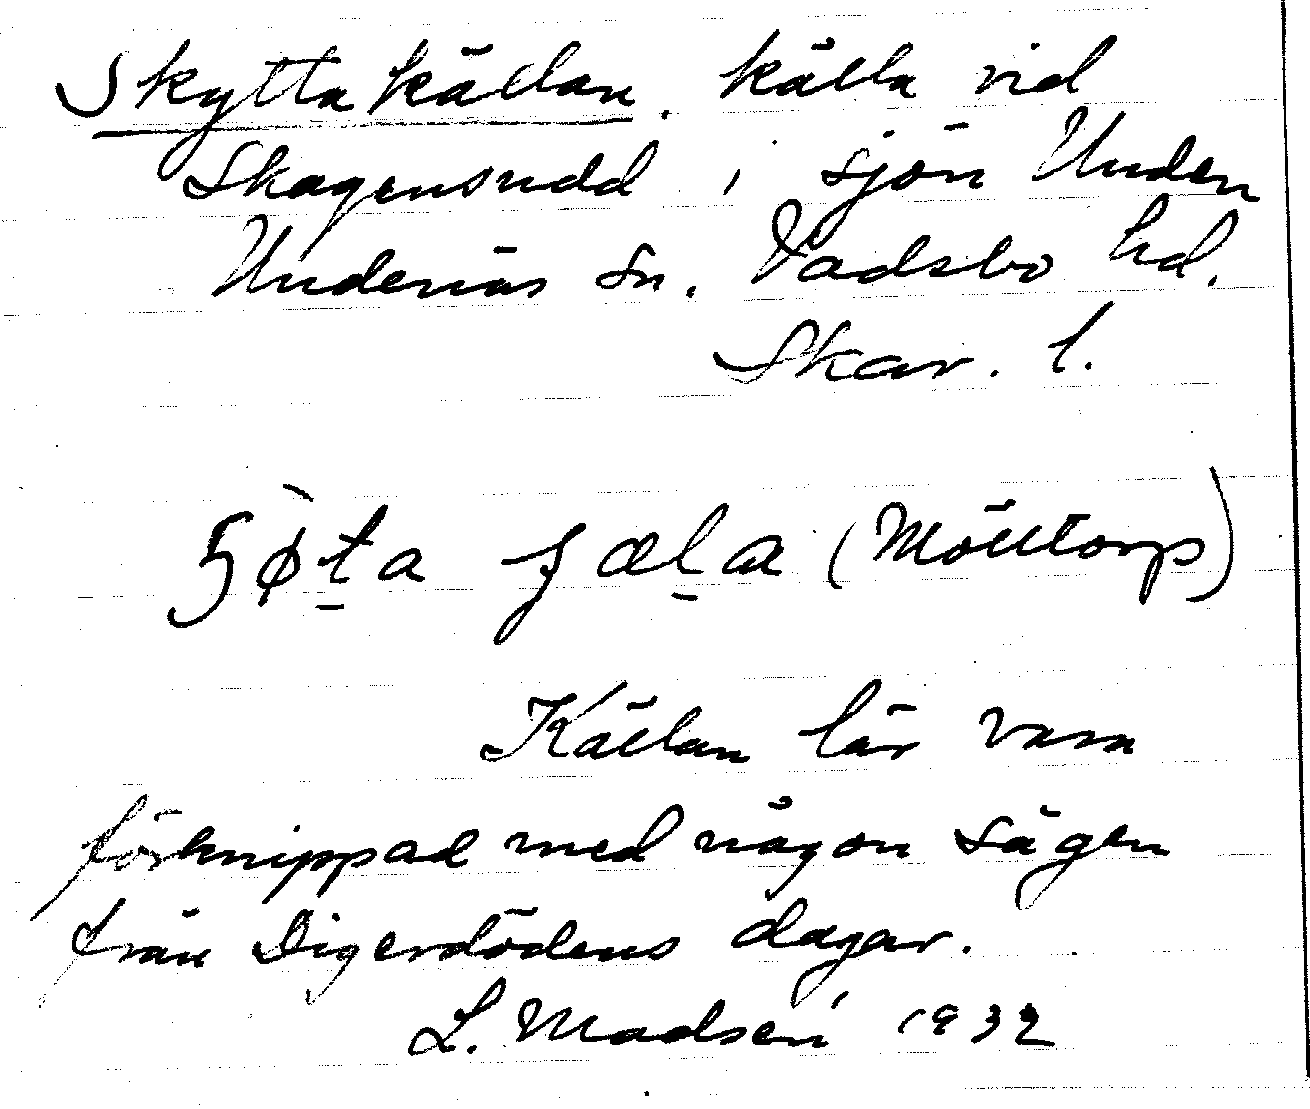 Skyttakällan. källa vid
Skagensudd i sjön Unden
Undenäs sn. Vadsbo hd.
Skar. l.
(Mölltorp)
Källan lär vara
förknippad med någon sägen
från Digerdödens dagar.
L. Madsén 1932